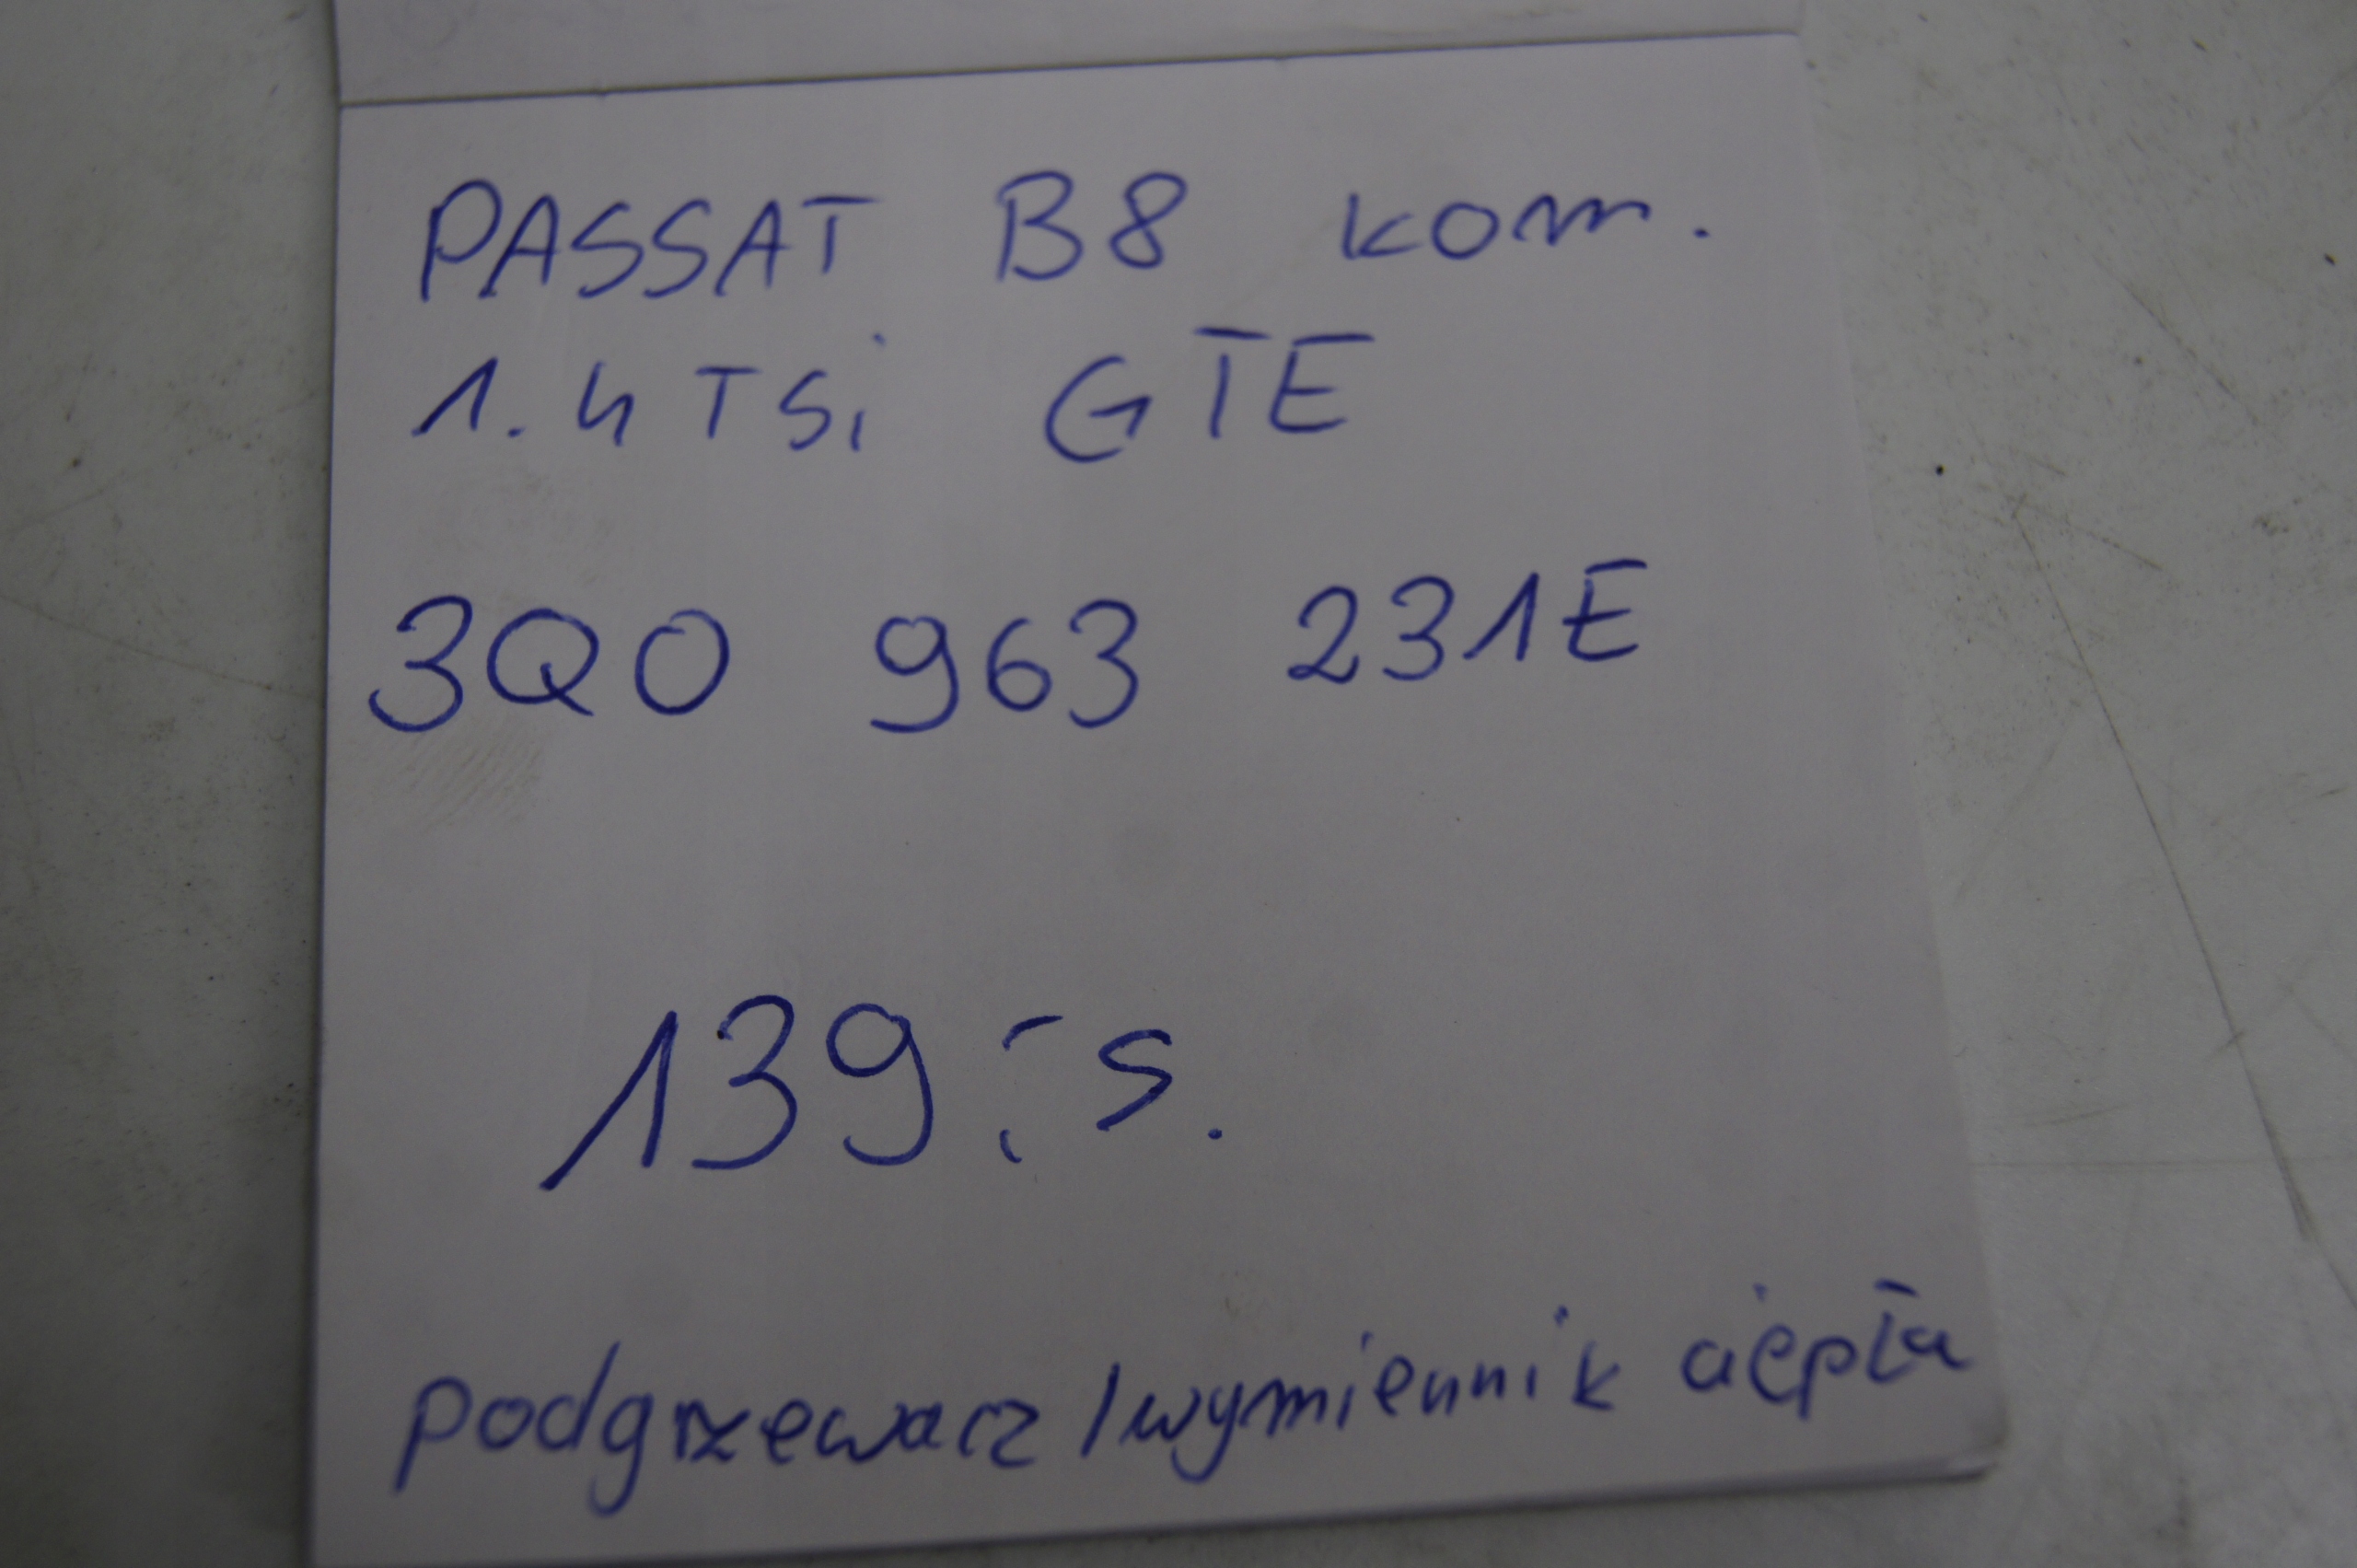 PASSAT B8 kom.
1.4 TSi GTE
3Q0 963 231E
139 :- S.
podgrzewacz / wymiennik ciepła